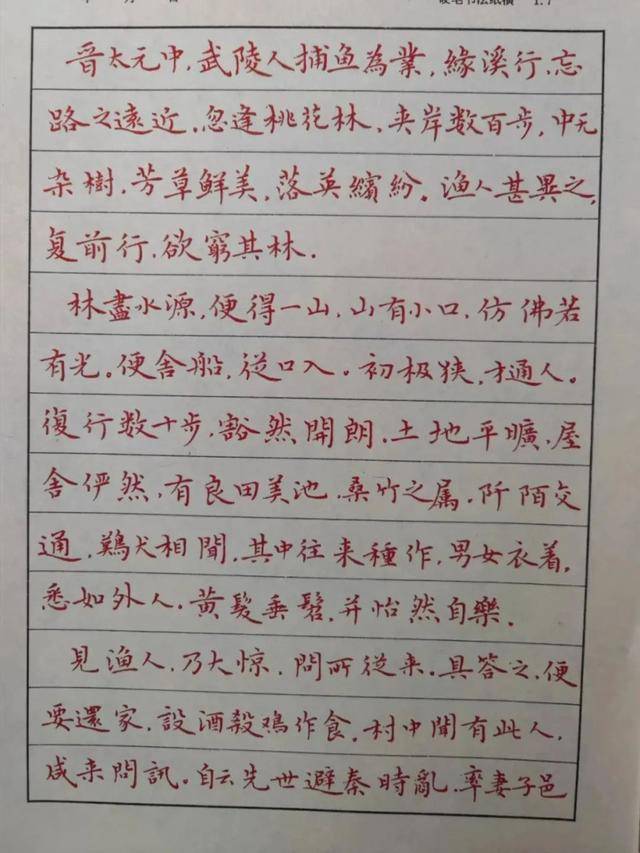 晋太元中,武陵人捕鱼為業,緣溪行,忘
路之遠近.忽逢桃花林,夹岸数百步,中无
杂樹,芳草鮮美,落英繽紛。渔人甚異之,
复前行,欲窮其林.
林盡水源,便得一山,山有小口,仿佛若
有光。便舍船,従口入。初极狭,才通人。
復行数十步,豁然開朗.土地平曠,屋
舍俨然,有良田美池,桑竹之属,阡陌交
通,鷄犬相聞,其中往来種作,男女衣着,
悉如外人.黄髮垂髫,并怡然自樂.
見漁人,乃大惊,問所従来.具答之,便
要還家,設酒殺鸡作食,村中聞有此人,
咸来問訊。自云先世避秦時亂,率妻子邑